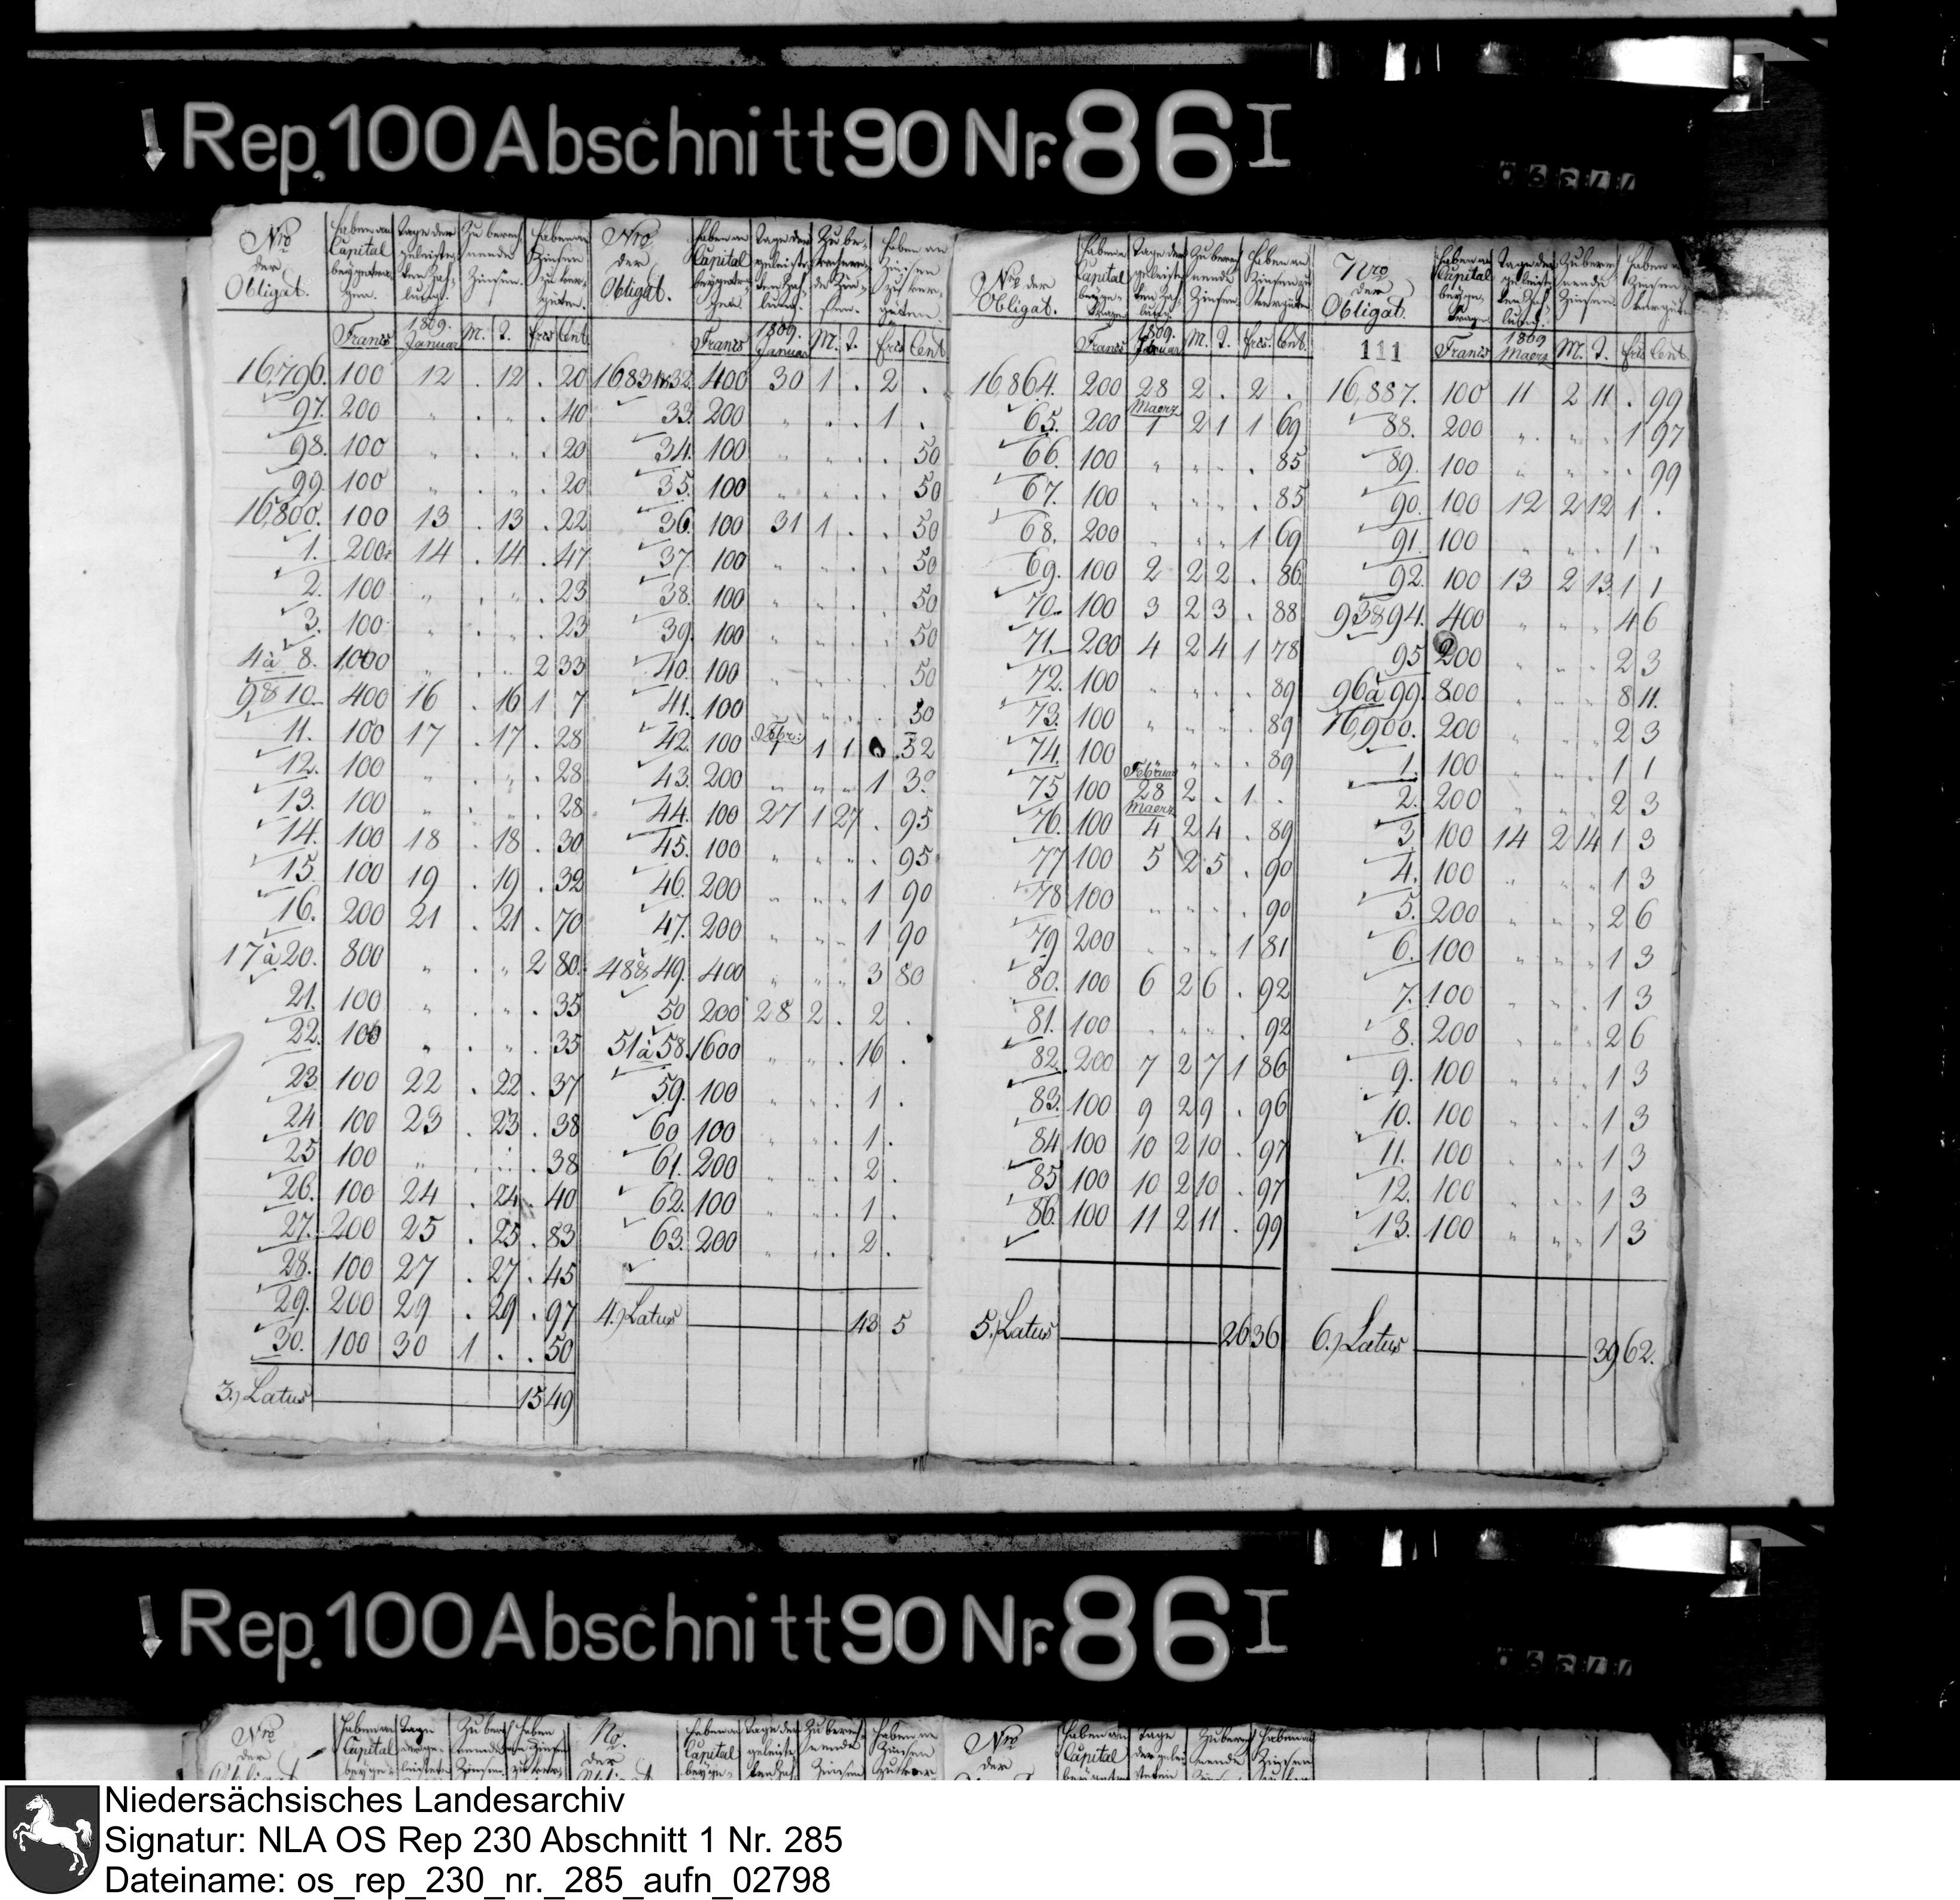 Rep. 100 Abschnitt 90 Nr. 86 I
Nro der Obligat.
haben an Capital beygetragen.
Tage der geleisteten Zahlung.
Zu berechnende Zinsen.
haben an Zinsen zu vergüten.
Francs 1809. Januar M. T. Frcs Cent
16,796. 100 12 . 12 . 20
97. 200 " . " . 40
98. 100 " . " . 20
99. 100 " . " . 20
16,800. 100 13 . 13 . 22
1. 200 14 . 14 . 47
2. 100 " . " . 23
3. 100 " . " . 23
4 à 8. 1000 " . " 2 33
9 & 10. 400 16 . 16 1 7
11. 100 17 . 17 . 28
12. 100 " . " . 28
13. 100 " . " . 28
14. 100 18 . 18 . 30
15. 100 19 . 19 . 32
16. 200 21 . 21 . 70
17 à 20. 800 " . " 2 80
21. 100 " . " . 35
22. 100 " . " . 35
23. 100 22 . 22 . 37
24 100 23 . 23 . 38
25 100 " . " . 38
26. 100 24 . 24 . 40
27. 200 25 . 25 . 83
28. 100 27 . 27 . 45
29. 200 29 . 29 . 97
30. 100 30 1 . . 50
3.) Latus 15 49
Nro der Obligat.
haben an Capital beygetragen
Tage der geleisteten Zahlung.
Zu berechnende Zinsen.
haben an Zinsen zu vergüten.
Francs 1809. Januar M. T. Frcs Cent
16831 & 32. 400 30 1 . 2 .
33. 200 " . . 1 .
34. 100 " . . . 50
35. 100 " . . . 50
36. 100 31 1 . . 50
37. 100 " " . . 50
38. 100 " " . . 50
39. 100 " " . . 50
40. 100 " " . . 50
41. 100 " " . . 50
42. 100 Febr: 1 1 1 . 52
43. 200 " " " 1 3
44. 100 27 1 27 . 95
45. 100 " " " . 95
46. 200 " " " 1 90
47. 200 " " " 1 90
48 & 49. 400 " " " 3 80
50 200 28 2 . 2 .
51 à 58. 1600 " " . 16 .
59. 100 " " . 1 .
60 100 " " . 1 .
61. 200 " " . 2 .
62. 100 " " . 1 .
63. 200 " " . 2 .
4.) Latus 43 5
Nro der Obligat.
haben an Capital beygetragen
Tage der geleisteten Zahlung
Zu berechnende Zinsen.
haben an Zinsen zu vergüten
Francs 1809. Februar M. T. Frcs. Cent.
16,864. 200 28 2 . 2 .
65. 200 Maerz 1 2 1 1 69
66. 100 " " " . 85
67. 100 " " " . 85
68. 200 " " " 1 69
69. 100 2 2 2 . 86
70. 100 3 2 3 . 88
71. 200 4 2 4 1 78
72. 100 " " " . 89
73. 100 " " " . 89
74. 100 " " " . 89
75 100 Februar 28 2 . 1 .
76. 100 Maerz 4 2 4 . 89
77 100 5 2 5 . 90
78 100 " " " . 90
79 200 " " " 1 81
80. 100 6 2 6 . 92
81. 100 " " " . 92
82. 200 7 2 7 1 86
83. 100 9 2 9 . 96
84 100 10 2 10 . 97
85 100 10 2 10 . 97
86. 100 11 2 11 . 99
5.) Latus 26 36
Nro der Obligat.
haben an Capital beygetragen
Tage der geleisteten Zahlung.
Zu berechnende Zinsen.
haben an Zinsen zu vergüten
111 Francs 1809 Maerz M. T. Frcs Cent
16,887. 100 11 2 11 . 99
88. 200 " " " 1 97
89. 100 " " " . 99
90. 100 12 2 12 1 .
91. 100 " " " 1 .
92. 100 13 2 13 1 1
93 & 94. 400 " " " 4 6
95 200 " " " 2 3
96 à 99. 800 " " " 8 11.
16,900. 200 " " " 2 3
1. 100 " " " 1 1
2. 200 " " " 2 3
3. 100 14 2 14 1 3
4. 100 " " " 1 3
5. 200 " " " 2 6
6. 100 " " " 1 3
7. 100 " " " 1 3
8. 200 " " " 2 6
9. 100 " " " 1 3
10. 100 " " " 1 3
11. 100 " " " 1 3
12. 100 " " " 1 3
13. 100 " " " 1 3
6.) Latus 39 62.
Rep. 100 Abschnitt 90 Nr. 86 I
Niedersächsisches Landesarchiv
Signatur: NLA OS Rep 230 Abschnitt 1 Nr. 285
Dateiname: os_rep_230_nr._285_aufn_02798